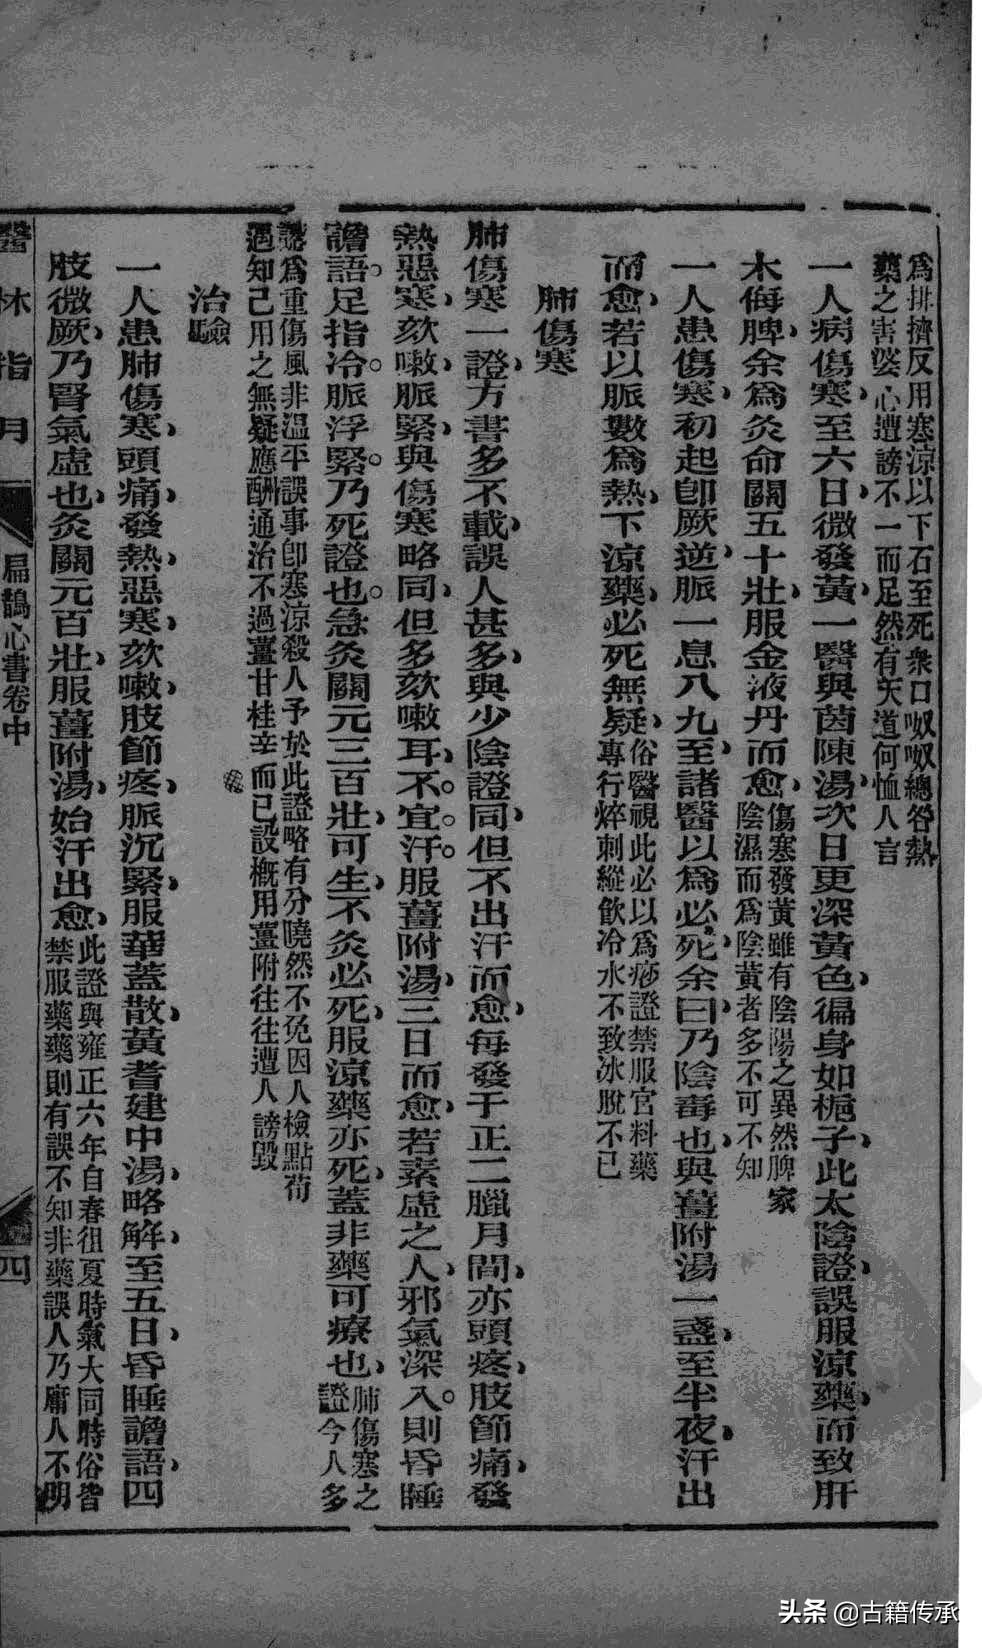 為排擠反用寒涼以下石至死衆口呶呶總咎熱
藥之害婆心遭謗不一而足然有天道何恤人言
一人病傷寒至六日微發黃一醫與茵陳湯次日更深黃色徧身如梔子此太陰證誤服涼藥而致肝
木侮脾余為灸命關五十壯服金液丹而愈
傷寒發黃雖有陰陽之異然脾家
陰濕而為陰黃者多不可不知
一人患傷寒初起卽厥逆脈一息八九至諸醫以為必死余曰乃陰毒也與薑附湯一盞至半夜汗出
而愈若以脈數為熱下涼藥必死無疑
俗醫視此必以為痧證禁服官料藥
專行焠刺縱飲冷水不致冰脫不已
肺傷寒
肺傷寒一證方書多不載誤人甚多與少陰證同但不出汗而愈每發于正二臘月間亦頭疼肢節痛發
熱惡寒欬嗽脈緊與傷寒略同但多欬嗽耳不宜汗服薑附湯三日而愈若素虛之人邪氣深入則昏睡
譫語足指冷脈浮緊乃死證也急灸關元三百壯可生不灸必死服涼藥亦死蓋非藥可療也
肺傷寒之
證今人多
認為重傷風非溫平誤事卽寒涼殺人予於此證略有分曉然不免因人檢點苟
遇知己用之無疑應酬通治不過薑甘桂辛而已設概用薑附往往遭人謗毀
治驗
一人患肺傷寒頭痛發熱惡寒欬嗽肢節疼脈沉緊服華蓋散黃耆建中湯略解至五日昏睡譫語四
肢微厥乃腎氣虛也灸關元百壯服薑附湯始汗出愈
此證與雍正六年自春徂夏時氣大同時俗皆
禁服藥藥則有誤不知非藥誤人乃庸人不明
醫林指月
扁鵲心書卷中
四
头条 @古籍传承